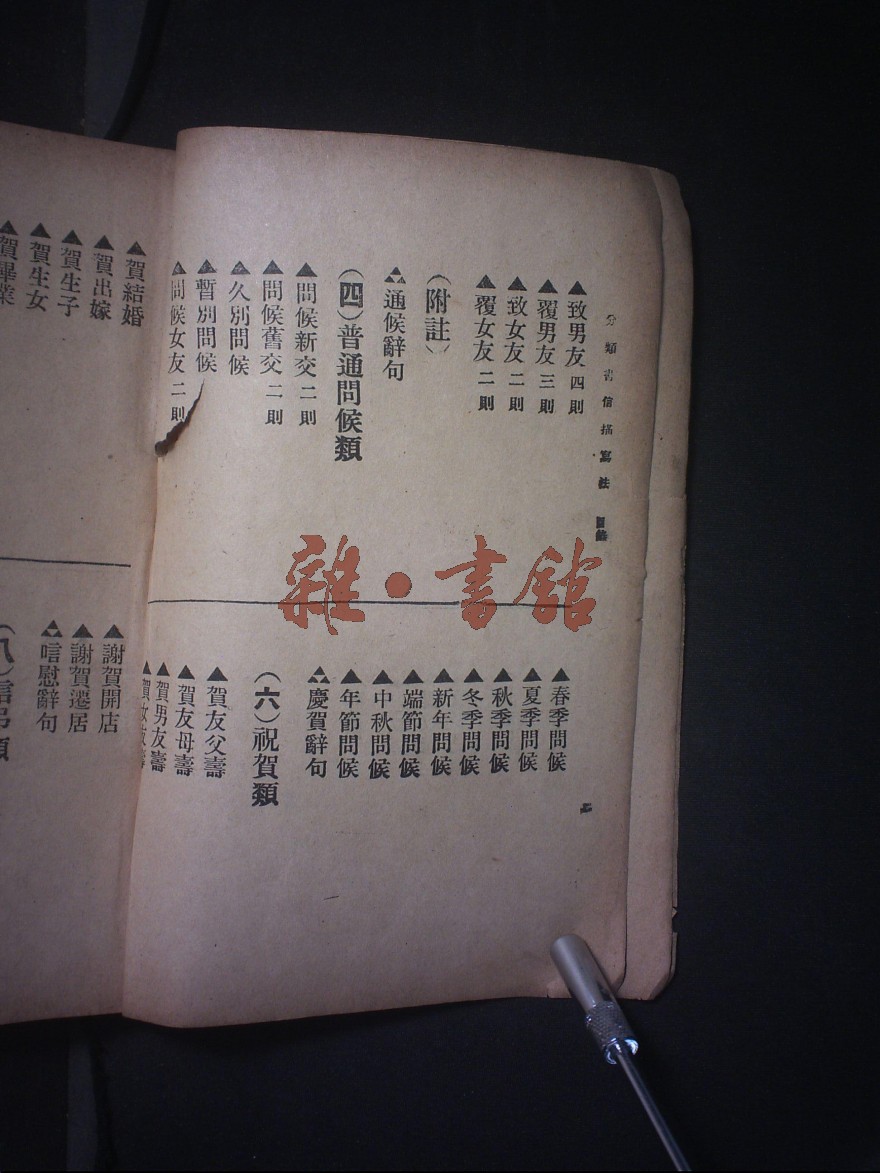 分類書信描寫法 目錄
▲致男友 四則
▲覆男友 三則
▲致女友 二則
▲覆女友 二則
（附註）
通候辭句
（四）普通問候類
▲問候新交 二則
▲問候舊交 二則
▲久別問候
▲暫別問候
▲問候女友 二則
▲春季問候
▲夏季問候
▲秋季問候
▲冬季問候
▲新年問候
▲端節問候
▲中秋問候
▲年節問候
慶賀辭句
（六）祝賀類
▲賀友父壽
▲賀友母壽
▲賀男友壽
▲賀女友壽
二
▲賀結婚
▲賀出嫁
▲賀生子
▲賀生女
▲賀畢業
▲謝賀開店
▲謝賀遷居
唁慰辭句
雜·書館